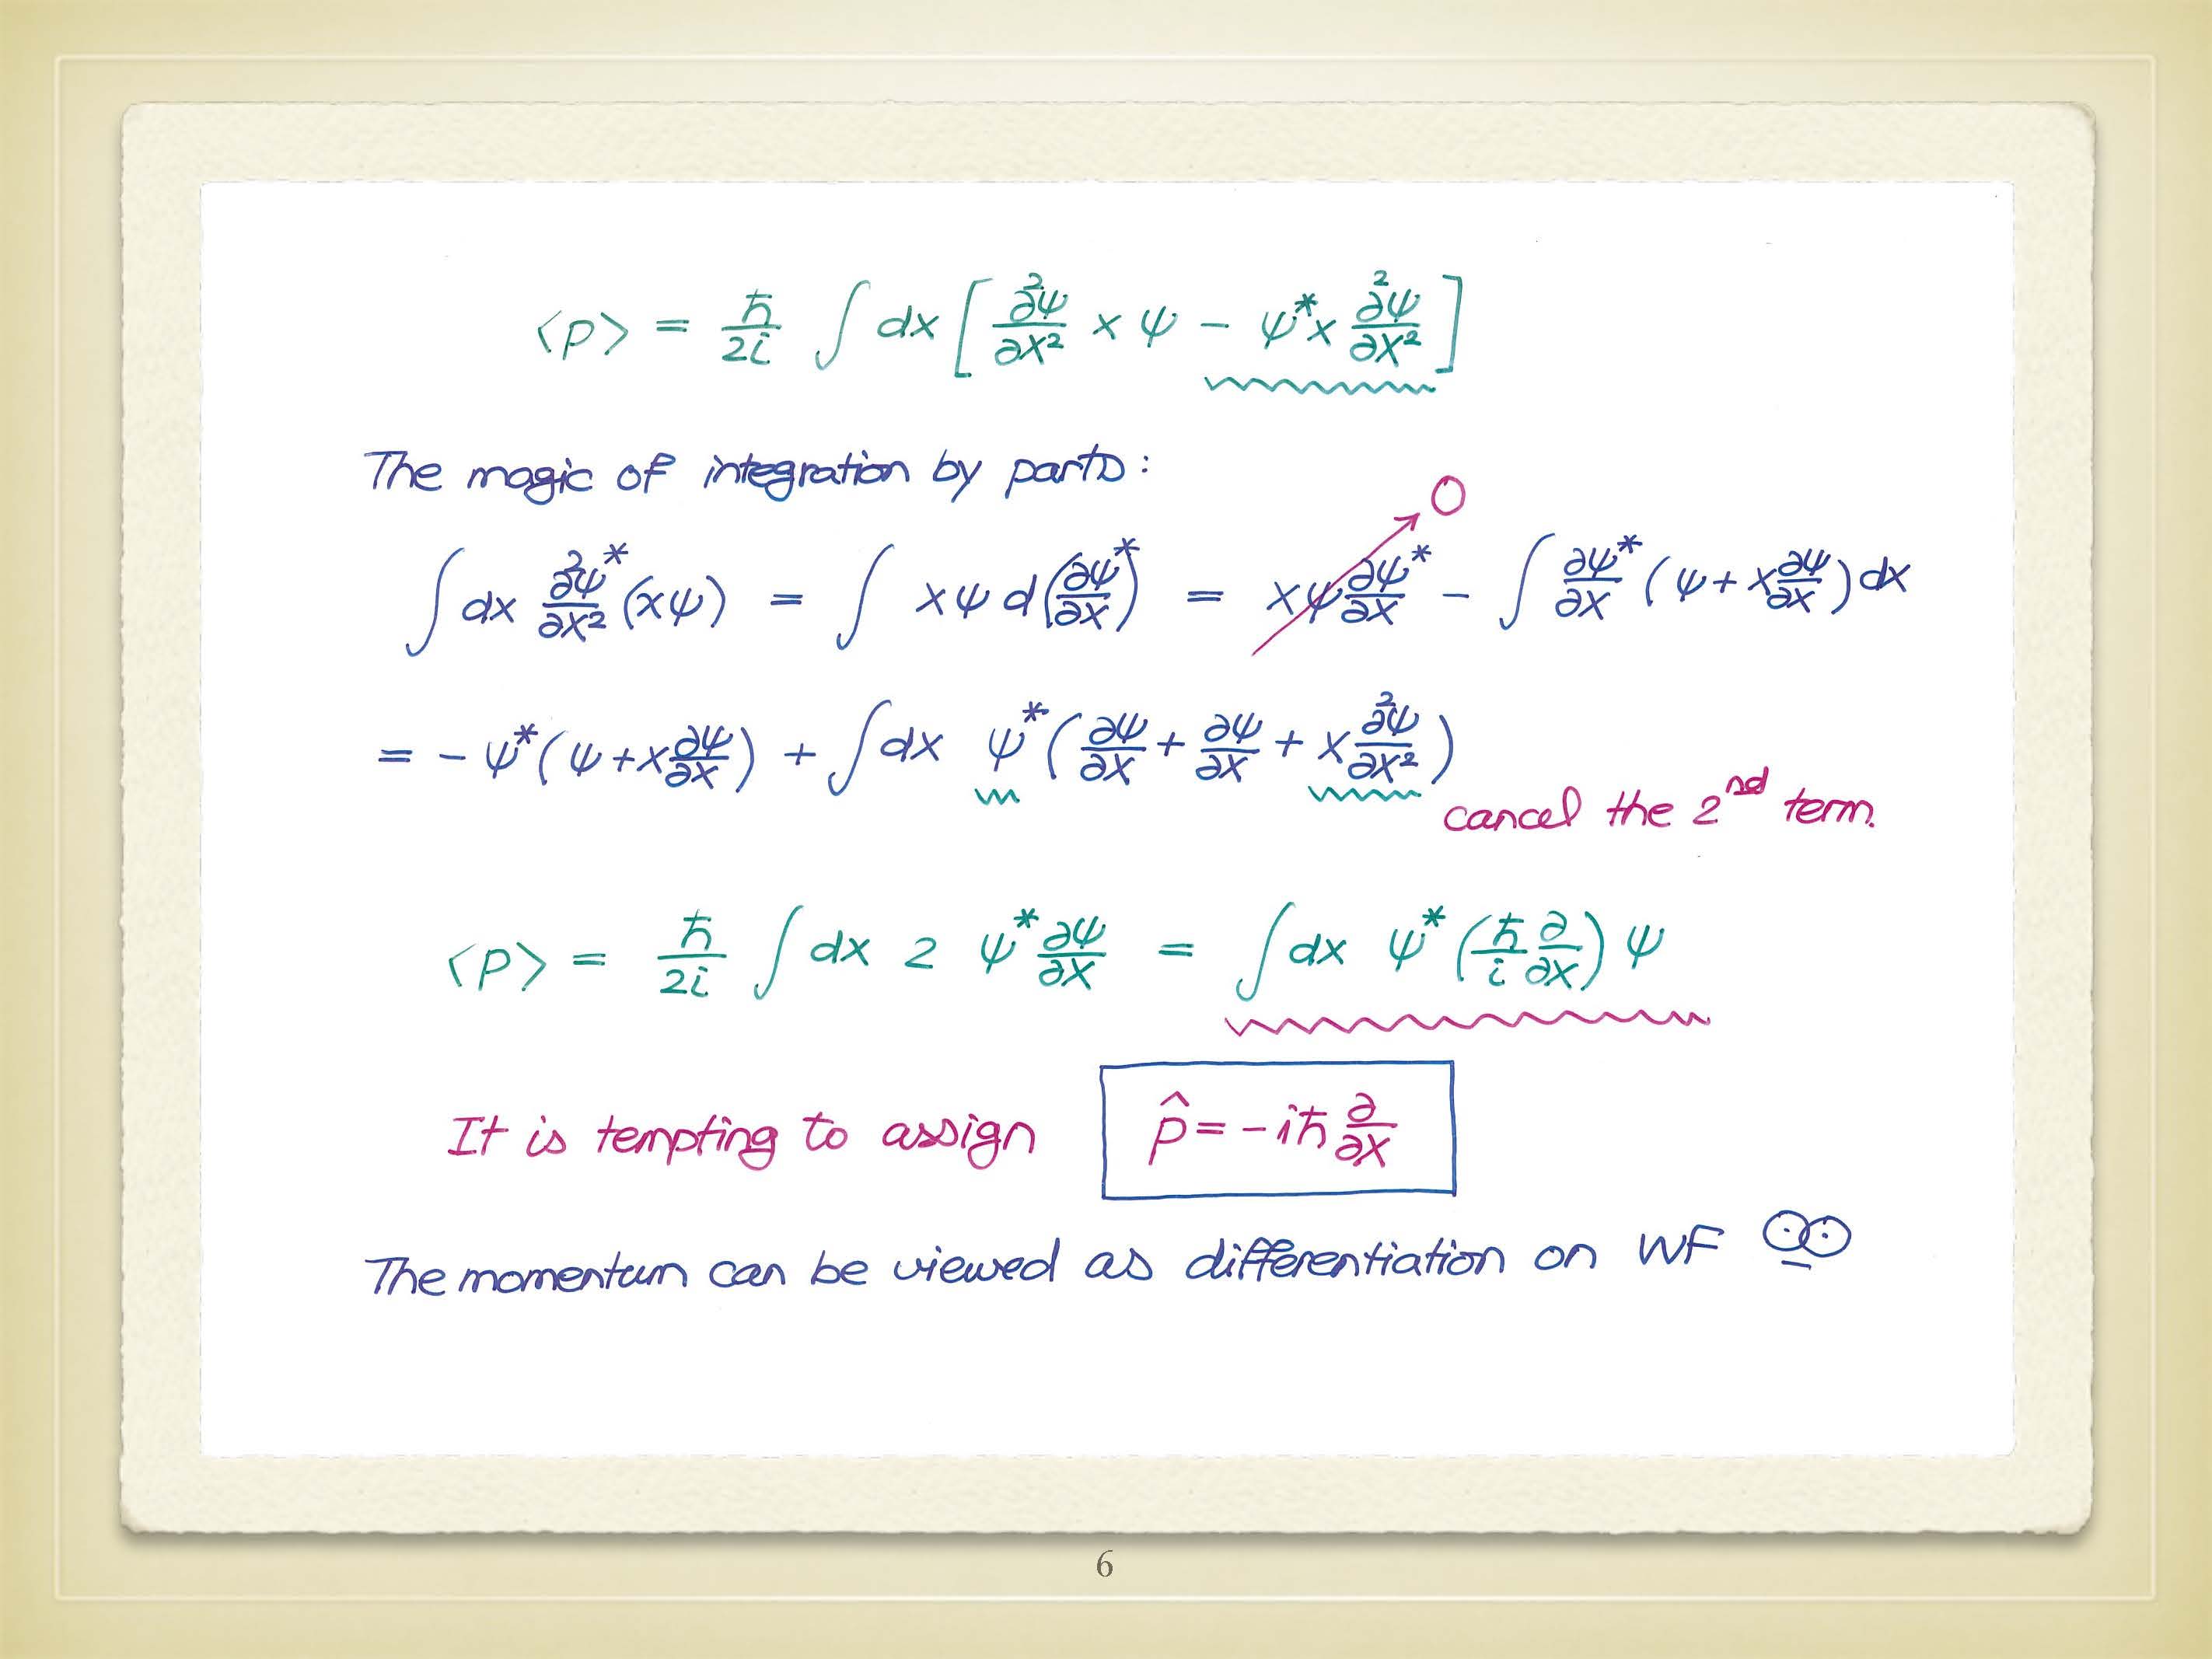 ⟨p⟩ = ħ/2i ∫ dx [ ∂²ψ/∂x² x ψ − ψ*x ∂²ψ/∂x² ]
The magic of integration by parts:
0
∫ dx ∂²ψ*/∂x² (xψ) = ∫ xψ d(∂ψ*/∂x) = xψ ∂ψ*/∂x − ∫ ∂ψ*/∂x (ψ + x ∂ψ/∂x) dx
= − ψ*(ψ + x ∂ψ/∂x) + ∫ dx ψ* (∂ψ/∂x + ∂ψ/∂x + x ∂²ψ/∂x²)
cancel the 2nd term.
⟨p⟩ = ħ/2i ∫ dx 2 ψ* ∂ψ/∂x = ∫ dx ψ* (ħ/i ∂/∂x) ψ
It is tempting to assign p̂ = −iħ ∂/∂x
The momentum can be viewed as differentiation on WF
6